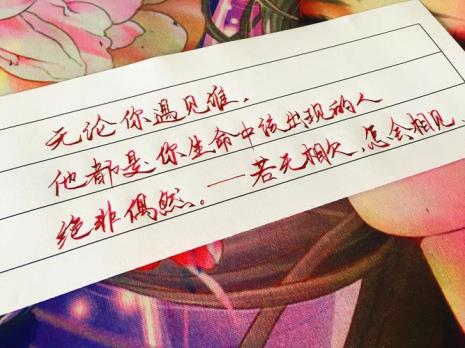 无论你遇见谁、
他都是你生命中该出现的人
绝非偶然。—若无相欠,怎会相见、